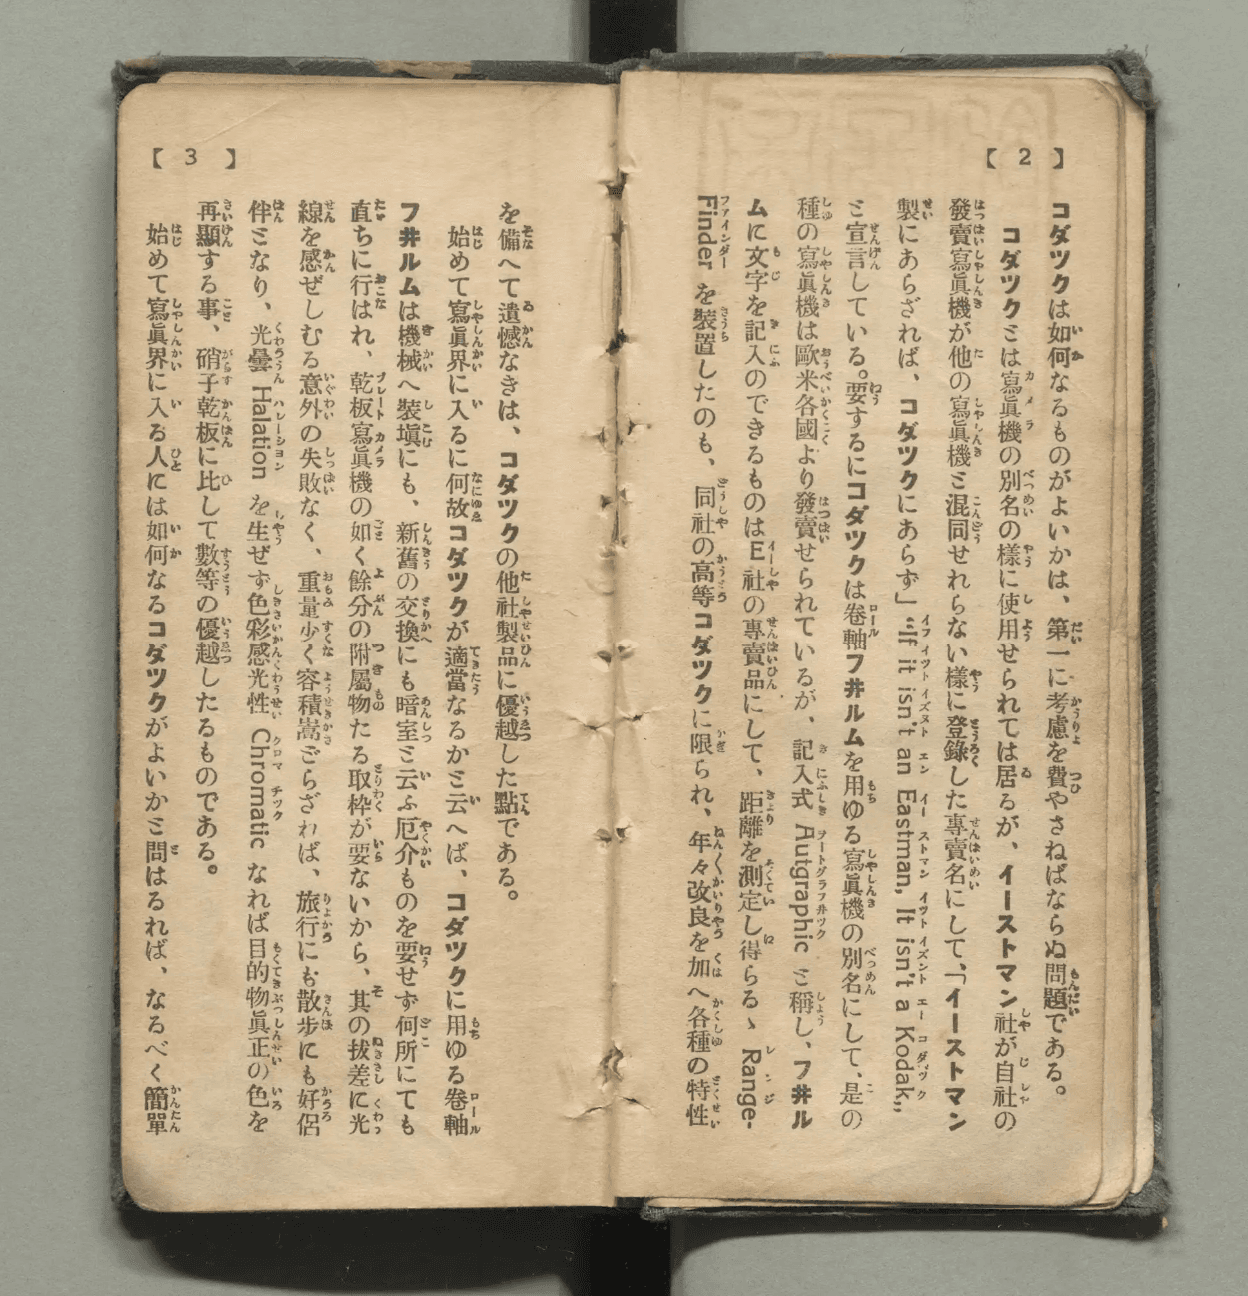 【2】
コダツクは如何なるものがよいかは、第一に考慮を費やさねばならぬ問題である。
コダツクミは寫眞機の別名の樣に使用せられては居るが、イーストマン社が自社の
發賣寫眞機が他の寫眞機ミ混同せれらない樣に登錄した專賣名にして、「イーストマン
製にあらざれば、コダツクにあらず」“If it isn't an Eastman, It isn't a Kodak„
ミ宣言している。要するにコダツクは卷軸フ井ルムを用ゆる寫眞機の別名にして、是の
種の寫眞機は歐米各國より發賣せられているが、記入式 Autgraphic ミ稱し、フ井ル
ムに文字を記入のできるものはE社の專賣品にして、距離を測定し得らるゝ Range-
Finder を裝置したのも、同社の高等コダツクに限られ、年々改良を加へ各種の特性
【3】
を備へて遺憾なきは、コダツクの他社製品に優越した點である。
始めて寫眞界に入るに何故コダツクが適當なるかミ云へば、コダツクに用ゆる卷軸
フ井ルムは機械へ裝塡にも、新舊の交換にも暗室ミ云ふ厄介ものを要せず何所にても
直ちに行はれ、乾板寫眞機の如く餘分の附屬物たる取枠が要ないから、其の拔差に光
線を感ぜしむる意外の失敗なく、重量少く容積嵩ごらざれば、旅行にも散步にも好侶
伴ミなり、光曇 Halation を生ぜず色彩感光性 Chromatic なれば目的物眞正の色を
再顯する事、硝子乾板に比して數等の優越したるものである。
始めて寫眞界に入る人には如何なるコダツクがよいかミ問はるれば、なるべく簡單